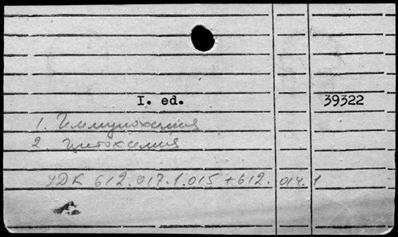 I. ed.
39322
1. Иммунохемия
2 Цитохемия
УДК 612.017.1.015 + 612.014.1